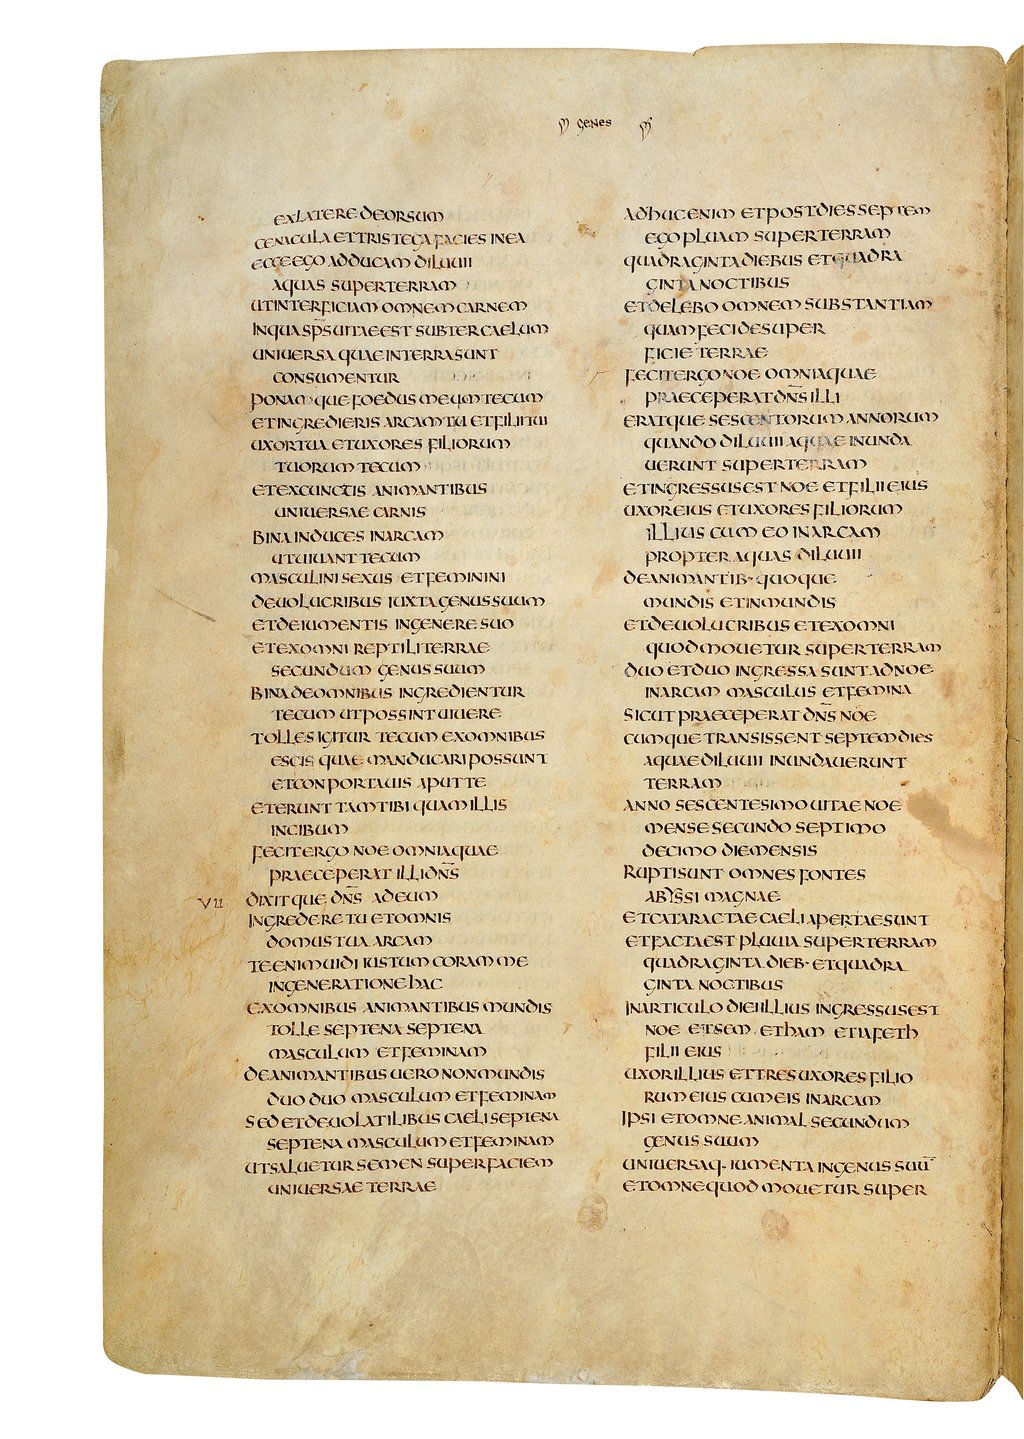 GENES
EXLATERE DEORSUM
CENACULA ET TRISTEGA FACIES IN EA
ECCE EGO ADDUCAM DILUUII
AQUAS SUPER TERRAM
UT INTERFICIAM OMNEM CARNEM
IN QUA SPS UITAE EST SUBTER CAELUM
UNIUERSA QUAE IN TERRA SUNT
CONSUMENTUR
PONAMQUE FOEDUS MEUM TECUM
ET INGREDIERIS ARCAM TU ET FILII TUI
UXOR TUA ET UXORES FILIORUM
TUORUM TECUM
ET EX CUNCTIS ANIMANTIBUS
UNIUERSAE CARNIS
BINA INDUCES IN ARCAM
UT UIUANT TECUM
MASCULINI SEXUS ET FEMININI
DE UOLUCRIBUS IUXTA GENUS SUUM
ET DE IUMENTIS IN GENERE SUO
ET EX OMNI REPTILI TERRAE
SECUNDUM GENUS SUUM
BINA DE OMNIBUS INGREDIENTUR
TECUM UT POSSINT UIUERE
TOLLES IGITUR TECUM EX OMNIBUS
ESCIS QUAE MANDUCARI POSSUNT
ET CONPORTAUIS APUT TE
ET ERUNT TAM TIBI QUAM ILLIS
IN CIBUM
FECIT ERGO NOE OMNIA QUAE
PRAECEPERAT ILLI DNS
VII DIXITQUE DNS AD EUM
INGREDERE TU ET OMNIS
DOMUS TUA ARCAM
TE ENIM UIDI IUSTUM CORAM ME
IN GENERATIONE HAC
EX OMNIBUS ANIMANTIBUS MUNDIS
TOLLE SEPTENA SEPTENA
MASCULUM ET FEMINAM
DE ANIMANTIBUS UERO NON MUNDIS
DUO DUO MASCULUM ET FEMINAM
SED ET DE UOLATILIBUS CAELI SEPTENA
SEPTENA MASCULUM ET FEMINAM
UT SALUETUR SEMEN SUPER FACIEM
UNIUERSAE TERRAE
ADHUC ENIM ET POST DIES SEPTEM
EGO PLUAM SUPER TERRAM
QUADRAGINTA DIEBUS ET QUADRA
GINTA NOCTIBUS
ET DELEBO OMNEM SUBSTANTIAM
QUAM FECI DE SUPER
FICIE TERRAE
FECIT ERGO NOE OMNIA QUAE
PRAECEPERAT DNS ILLI
ERATQUE SESCENTORUM ANNORUM
QUANDO DILUUII AQUAE INUNDA
UERUNT SUPER TERRAM
ET INGRESSUS EST NOE ET FILII EIUS
UXOR EIUS ET UXORES FILIORUM
ILLIUS CUM EO IN ARCAM
PROPTER AQUAS DILUUII
DE ANIMANTIB· QUOQUE
MUNDIS ET INMUNDIS
ET DE UOLUCRIBUS ET EX OMNI
QUOD MOUETUR SUPER TERRAM
DUO ET DUO INGRESSA SUNT AD NOE
IN ARCAM MASCULUS ET FEMINA
SICUT PRAECEPERAT DNS NOE
CUMQUE TRANSISSENT SEPTEM DIES
AQUAE DILUUII INUNDAUERUNT
TERRAM
ANNO SESCENTESIMO UITAE NOE
MENSE SECUNDO SEPTIMO
DECIMO DIE MENSIS
RUPTI SUNT OMNES FONTES
ABYSSI MAGNAE
ET CATARACTAE CAELI APERTAE SUNT
ET FACTA EST PLUUIA SUPER TERRAM
QUADRAGINTA DIEB· ET QUADRA
GINTA NOCTIBUS
IN ARTICULO DIEI ILLIUS INGRESSUS EST
NOE ET SEM ET HAM ET IAFETH
FILII EIUS
UXOR ILLIUS ET TRES UXORES FILIO
RUM EIUS CUM EIS IN ARCAM
IPSI ET OMNE ANIMAL SECUNDUM
GENUS SUUM
UNIUERSAQ· IUMENTA IN GENUS SUU
ET OMNE QUOD MOUETUR SUPER